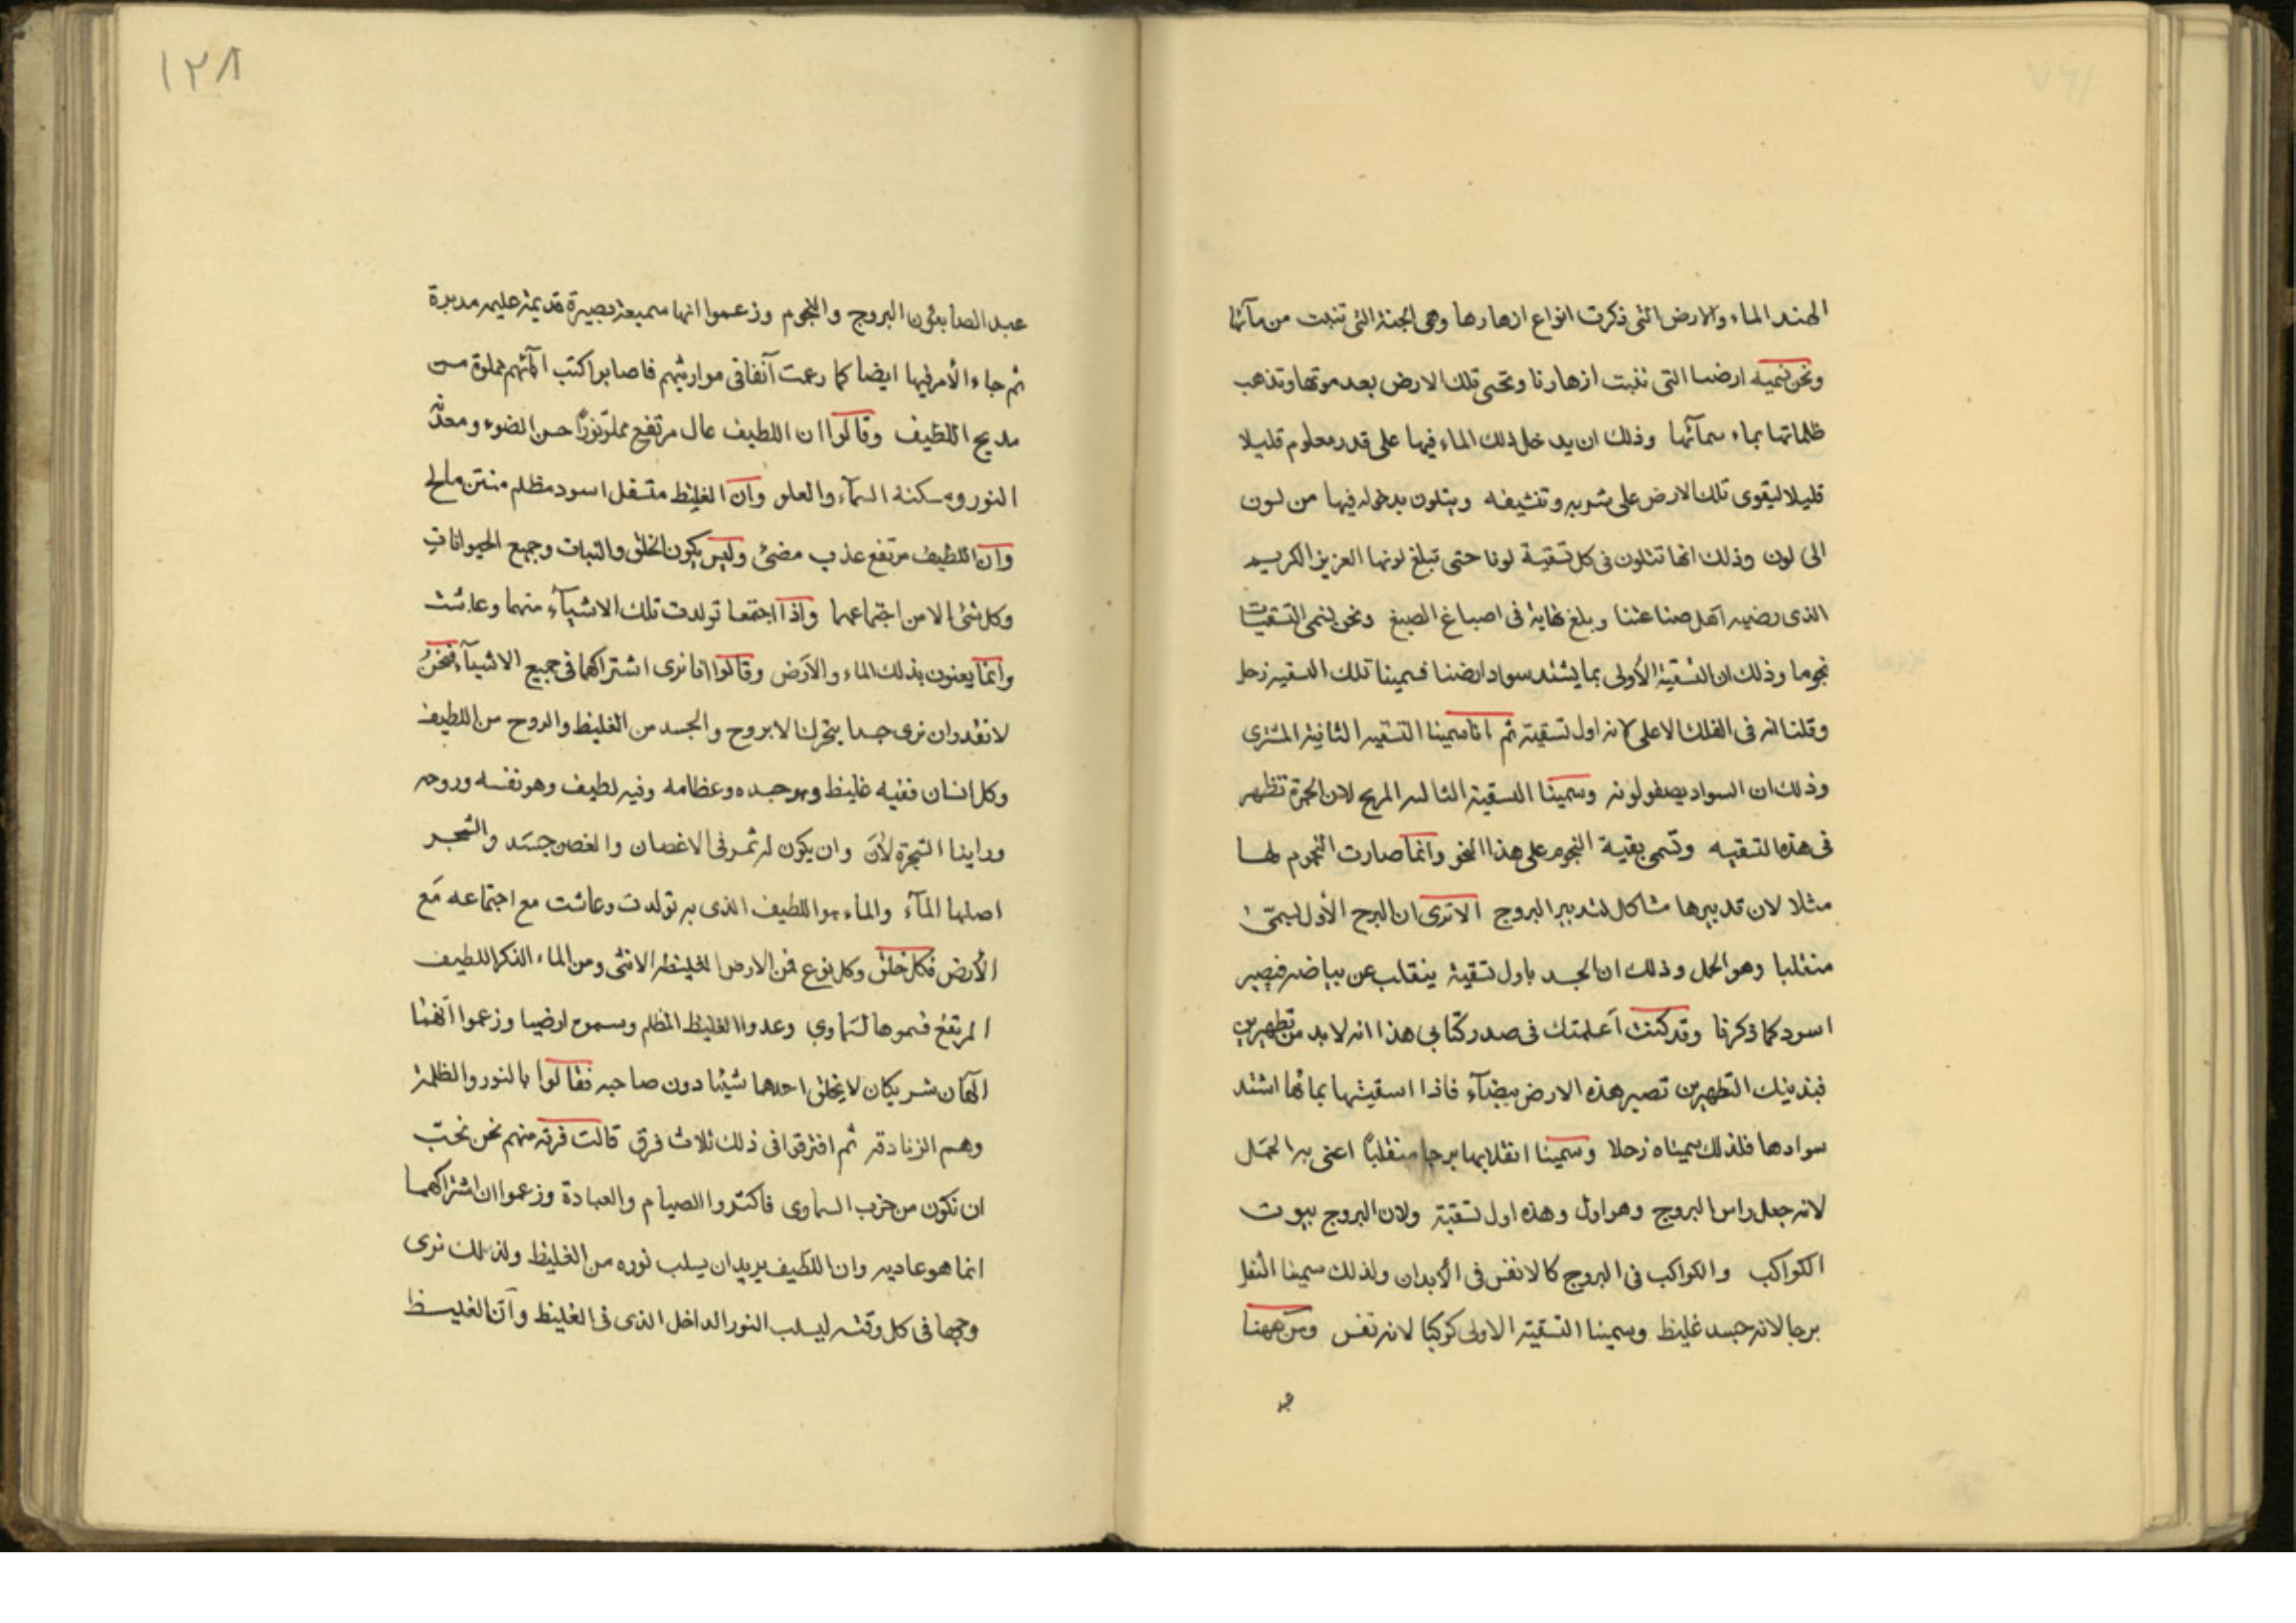 الهند الماء والارض التى ذكرت انواع ازهارها وهى الجنة التى تنبت من مائها
ونحن نسميه ارضنا التى تنبت ازهارنا وتحيى تلك الارض بعد موتها وتذهب
ظلماتها بماء سمآئها وذلك ان يدخل ذلك الماء فيها على قدر معلوم قليلا
قليلا ليقوى تلك الارض على شربه وتنشيفه ويتلون بدخوله فيها من لون
الى لون وذلك انها تتلون فى كل تسقية لونا حتى تبلغ لونها العزيز الكريم
الذى رضيه اهل صناعتنا وبلغ نهاية فى اصباغ الصبغ ونحن نسمى التسقيات
نجوما وذلك ان التسقية الأولى بما يشتد سواد ارضنا فسمينا تلك التسقيه زحل
وقلنا انه فى الفلك الاعلى لانه اول تسقية ثم انا سمينا التسقيه الثانية المشترى
وذلك ان السواد يصفو لونه وسمينا التسقية الثالثه المريخ لان الحمرة تظهر
فى هذه التسقيه وتسمى بقية النجوم على هذا النحو وانما صارت النجوم لها
مثلا لان تدبيرها مشاكل لتدبير البروج الا ترى ان البرج الأول يسمى
منقلبا وهو الحمل وذلك ان الجسد باول تسقية ينقلب عن بياضه فيصير
اسود كما ذكرنا وقد كنت أعلمتك فى صدر كتابي هذا انه لا بد من تطهيرين
فبذينك التطهيرين تصير هذه الارض بيضآء فاذا اسقيتها بمائها اشتد
سوادها فلذلك سميناه زحلا وسمينا انقلابها برجا منقلبًا اعنى به الحمل
لانه جعل راس البروج وهو اول وهذه اول تسقية ولان البروج بيوت
الكواكب والكواكب فى البروج كالانفس فى الأبدان ولذلك سمينا الثفل
برجا لانه جسد غليظ وسمينا التسقية الاولى كوكبا لانه نفس ومن ههنا
١٢٨
عبد الصابئون البروج والنجوم وزعموا انها سميعة بصيرة قديمة عليمه مدبرة
ثم جاء الأمر فيها ايضا كما زعمت آنفا فى مواريثهم فاصابوا كتب آبائهم مملوة من
مديح اللطيف وقالوا ان اللطيف عال مرتفع مملو نورًا حسن الضوء ومعدن
النور وبه سكنة السمآء والعلو وان الغليظ متسفل اسود مظلم منتن مالح
وان اللطيف مرتفع عذب مضئ وليس يكون الخلق والنبات وجميع الحيوانات
وكل شئ الا من اجتماعهما واذا اجتمعا تولدت تلك الاشيآء منهما وعاشت
وانما يعنون بذلك الماء والأرض وقالوا انا نرى اشتراكهما فى جميع الاشيآء فنحن
لا نقدر ان نرى جسدا يتحرك الا بروح والجسد من الغليظ والروح من اللطيف
وكل انسان ففيه غليظ وهو جسده وعظامه وفيه لطيف وهو نفسه وروحه
وراينا الشجرة لان وان يكون له ثمر فى الاغصان والغصن جسد والشجر
اصلها المآء والماء هو اللطيف الذى به تولدت وعاشت مع اجتماعه مع
الأرض فكل خلق وكل نوع فمن الارض الغليظه الانثى ومن الماء الذكر اللطيف
المرتفع فسموها السماوي وعدوا الغليظ المظلم وسموه ارضيا وزعموا انهما
الهان شريكان لا يخلق احدهما شيئا دون صاحبه فقالوا بالنور والظلمة
وهم الزنادقه ثم افترقوا فى ذلك ثلاث فرق قالت فرقه منهم نحن نحب
ان نكون من حزب السماوى فاكثروا الصيام والعبادة وزعموا ان اشتراكهما
انما هو عاديه وان اللطيف يريد ان يسلب نوره من الغليظ ولذلك نرى
وجهها فى كل وقته ليسلب النور الداخل الذى فى الغليظ وان الغليظ